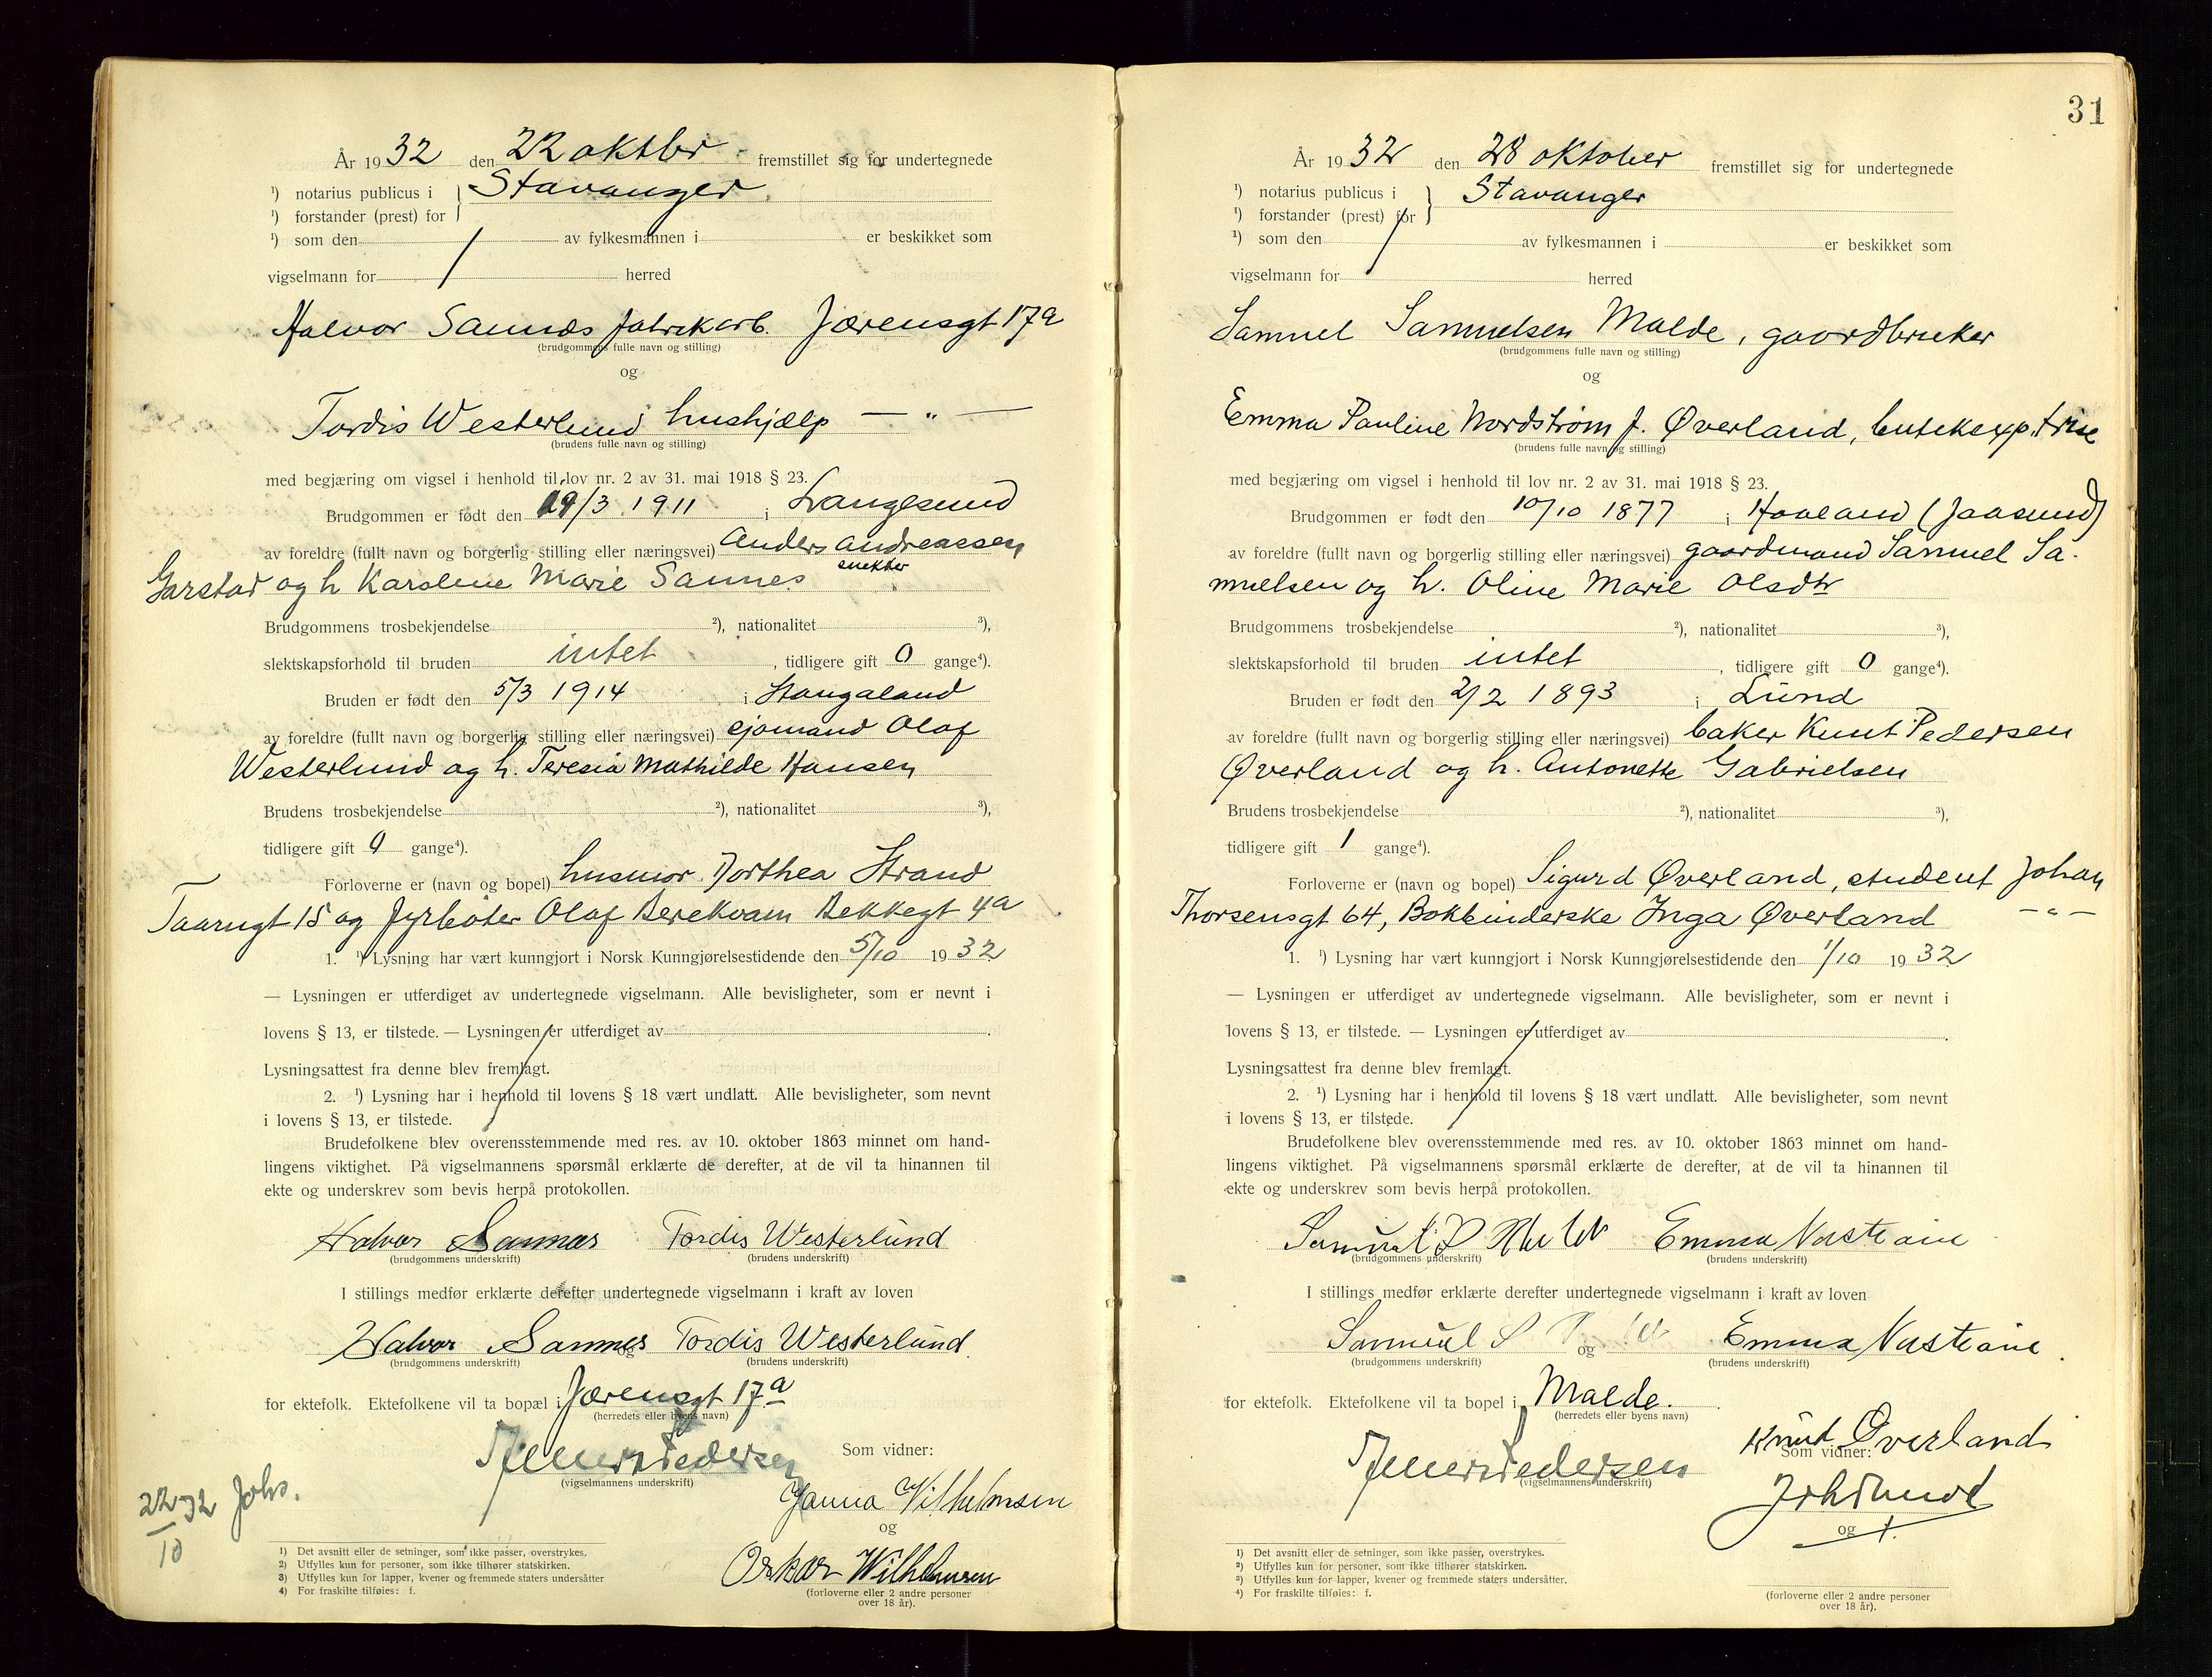 År 1932 den 22 oktbr fremstillet sig for undertegnede
¹) notarius publicus i } Stavanger
¹) forstander (prest) for
¹) som den av fylkesmannen i er beskikket som
vigselmann for herred
Halvor Sannes fabrikarb. Jærensgt 17a
(brudgommens fulle navn og stilling)
og
Tordis Westerlund hushjælp — " —
(brudens fulle navn og stilling)
med begjæring om vigsel i henhold til lov nr. 2 av 31. mai 1918 § 23.
Brudgommen er født den 19/3 1911 i Langesund
av foreldre (fullt navn og borgerlig stilling eller næringsvei) Anders Andreassen
snekker
Garstad og h Karoline Marie Sannes
Brudgommens trosbekjendelse ²), nationalitet ³),
slektskapsforhold til bruden intet, tidligere gift 0 gange⁴).
Bruden er født den 5/3 1914 i Haugaland
av foreldre (fullt navn og borgerlig stilling eller næringsvei) sjømand Olaf
Westerlund og h. Teresia Mathilde Hansen
Brudens trosbekjendelse ²), nationalitet ³),
tidligere gift 0 gange⁴).
Forloverne er (navn og bopel) husmor Dorthea Strand
Taarngt 15 og fyrbøter Olaf Berekvam Bekkegt 4a
1. ¹) Lysning har vært kunngjort i Norsk Kunngjørelsestidende den 5/10 1932
— Lysningen er utferdiget av undertegnede vigselmann. Alle bevisligheter, som er nevnt i
lovens § 13, er tilstede. — Lysningen er utferdiget av .
Lysningsattest fra denne blev fremlagt.
2. ¹) Lysning har i henhold til lovens § 18 vært undlatt. Alle bevisligheter, som nevnt
i lovens § 13, er tilstede.
Brudefolkene blev overensstemmende med res. av 10. oktober 1863 minnet om hand-
lingens viktighet. På vigselmannens spørsmål erklærte de derefter, at de vil ta hinannen til
ekte og underskrev som bevis herpå protokollen.
Halvor Sannes Tordis Westerlund
(brudgommens underskrift) (brudens underskrift)
I stillings medfør erklærte derefter undertegnede vigselmann i kraft av loven
Halvor Sannes og Tordis Westerlund.
(brudgommens underskrift) (brudens underskrift)
for ektefolk. Ektefolkene vil ta bopæl i Jærensgt 17a
(herredets eller byens navn)
Som vidner:
(vigselmannens underskrift)
Janna Vilhelmsen
og
Oskar Wilhelmsen
(forloverne eller 2 andre personer
over 18 år).
22/10 32 Johs.
1) Det avsnitt eller de setninger, som ikke passer, overstrykes.
2) Utfylles kun for personer, som ikke tilhører statskirken.
3) Utfylles kun for lapper, kvener og fremmede staters undersåtter
4) For fraskilte tilføies: f.
31
År 1932 den 28 oktober fremstillet sig for undertegnede
¹) notarius publicus i } Stavanger
¹) forstander (prest) for
¹) som den av fylkesmannen i er beskikket som
vigselmann for herred
Samuel Samuelsen Malde, gaardbruker
(brudgommens fulle navn og stilling)
og
Emma Pauline Nordstrøm f. Øverland, butikexp.trise
(brudens fulle navn og stilling)
med begjæring om vigsel i henhold til lov nr. 2 av 31. mai 1918 § 23.
Brudgommen er født den 10/10 1877 i Haaland (Jaasund)
av foreldre (fullt navn og borgerlig stilling eller næringsvei) gaardmand Samuel Sa-
muelsen og h. Oline Marie Olsdtr
Brudgommens trosbekjendelse ²), nationalitet ³),
slektskapsforhold til bruden intet, tidligere gift 0 gange⁴).
Bruden er født den 2/2 1893 i Lund
av foreldre (fullt navn og borgerlig stilling eller næringsvei) baker Knut Pedersen
Øverland og h. Antonette Gabrielsen
Brudens trosbekjendelse ²), nationalitet ³),
tidligere gift 1 gange⁴).
Forloverne er (navn og bopel) Sigurd Øverland, student Johan
Thorsensgt 64, Bokbinderske Inga Øverland — " —
1. ¹) Lysning har vært kunngjort i Norsk Kunngjørelsestidende den 1/10 1932
— Lysningen er utferdiget av undertegnede vigselmann. Alle bevisligheter, som er nevnt i
lovens § 13, er tilstede. — Lysningen er utferdiget av .
Lysningsattest fra denne blev fremlagt.
2. ¹) Lysning har i henhold til lovens § 18 vært undlatt. Alle bevisligheter, som nevnt
i lovens § 13, er tilstede.
Brudefolkene blev overensstemmende med res. av 10. oktober 1863 minnet om hand-
lingens viktighet. På vigselmannens spørsmål erklærte de derefter, at de vil ta hinannen til
ekte og underskrev som bevis herpå protokollen.
Samuel S Emma
(brudgommens underskrift) (brudens underskrift)
I stillings medfør erklærte derefter undertegnede vigselmann i kraft av loven
Samuel S og Emma
(brudgommens underskrift) (brudens underskrift)
for ektefolk. Ektefolkene vil ta bopel i Malde.
(herredets eller byens navn)
Knut Øverland
Som vidner:
(vigselmannens underskrift)
og
(forloverne eller 2 andre personer
over 18 år).
1) Det avsnitt eller de setninger, som ikke passer, overstrykes.
2) Utfylles kun for personer, som ikke tilhører statskirken.
3) Utfylles kun for lapper, kvener og fremmede staters undersåtter.
4) For fraskilte tilføies: f.